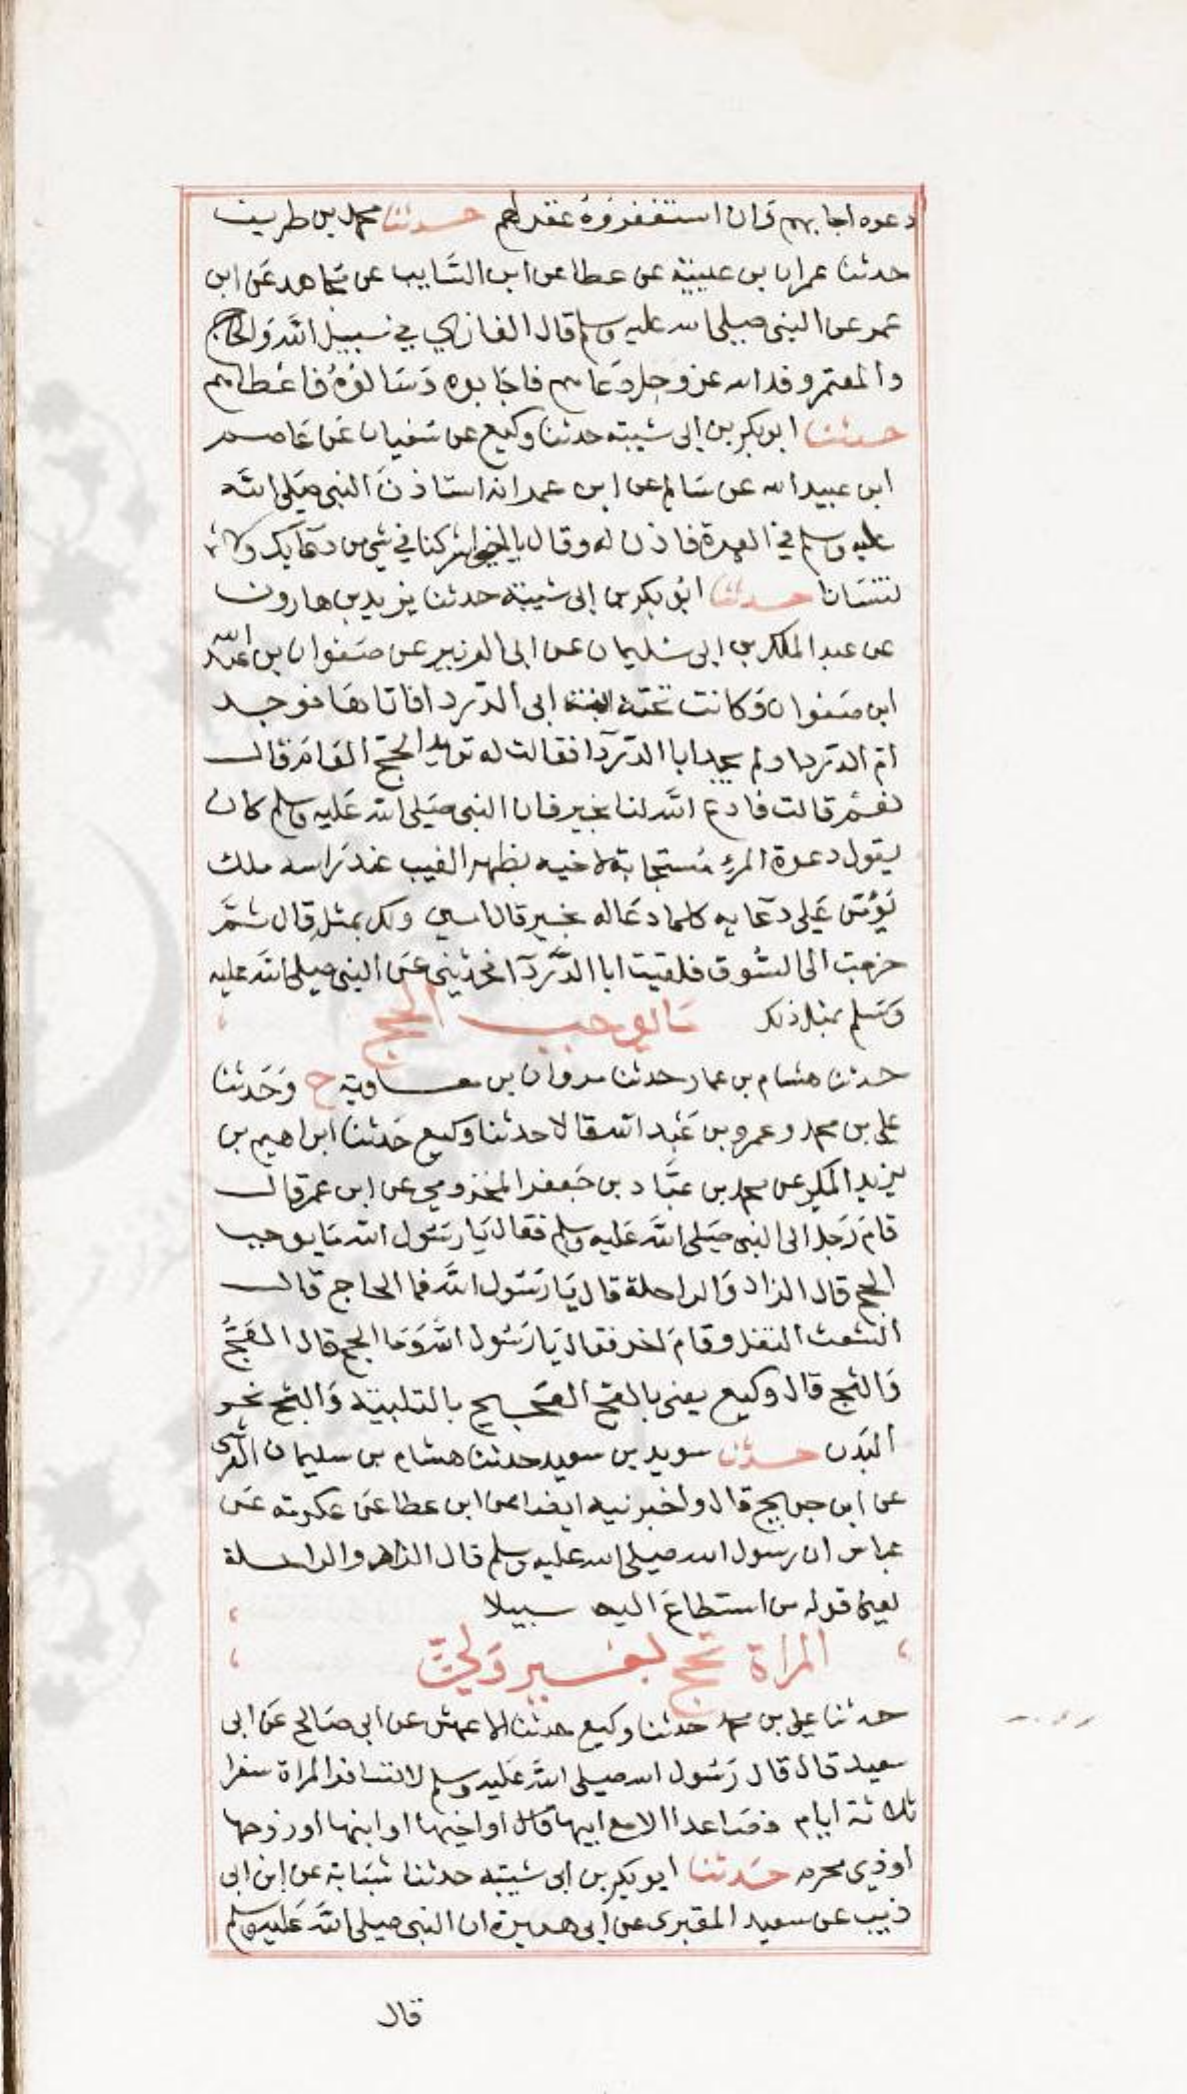 دعوه اجابهم وان استغفروه غفر لهم حدثنا محمد بن طريف
حدثنا عمران بن عيينة عن عطا عن ابن السايب عن مجاهد عن ابن
عمر عن النبي صلى الله عليه وسلم قال الغازي في سبيل الله والحاج
والمعتمر وفد الله عز وجل دعاهم فاجابوه وسالوه فاعطاهم
حدثنا ابو بكر بن ابي شيبة حدثنا وكيع عن سفيان عن عاصم
ابن عبيد الله عن سالم عن ابن عمر انه استاذن النبي صلى الله
عليه وسلم في العمرة فاذن له وقال يا اخي اشركنا في شي من دعايك ولا
تنسانا حدثنا ابو بكر بن ابي شيبة حدثنا يزيد بن هارون
عن عبد الملك بن ابي سليمان عن ابي الزبير عن صفوان بن عبد الله
ابن صفوان وكانت تحته ابنة ابي الدردا فاتاها فوجد
ام الدردا ولم يجد ابا الدردا فقالت له تريد الحج العام قال
نعم قالت فادع الله لنا بخير فان النبي صلى الله عليه وسلم كان
يقول دعوة المرء مستجابة لاخيه بظهر الغيب عند راسه ملك
يؤمن على دعايه كلما دعا له بخير قال امين ولك بمثل قال ثم
خرجت الى السوق فلقيت ابا الدردا فحدثني عن النبي صلى الله عليه
وسلم بمثل ذلك ما يوجب الحج
حدثنا هشام بن عمار حدثنا مروان بن معاوية ح وحدثنا
علي بن محمد وعمرو بن عبد الله قالا حدثنا وكيع حدثنا ابراهيم بن
يزيد المكي عن محمد بن عباد بن جعفر المخزومي عن ابن عمر قال
قام رجل الى النبي صلى الله عليه وسلم فقال يا رسول الله ما يوجب
الحج قال الزاد والراحلة قال يا رسول الله فما الحاج قال
الشعث التفل وقام اخر فقال يا رسول الله وما الحج قال العج
والثج قال وكيع يعني بالعج العجيج بالتلبية والثج نحر
البدن حدثنا سويد بن سعيد حدثنا هشام بن سليمان القرشي
عن ابن جريج قال واخبرنيه ايضا عن ابن عطا عن عكرمة عن
عباس ان رسول الله صلى الله عليه وسلم قال الزاد والراحلة
يعني قوله من استطاع اليه سبيلا
المراة تحج بغير ولي
حدثنا علي بن محمد حدثنا وكيع حدثنا الاعمش عن ابي صالح عن ابي
سعيد قال قال رسول الله صلى الله عليه وسلم لا تسافر المراة سفرا
ثلاثة ايام فصاعدا الا مع ابيها او اخيها او ابنها او زوجها
او ذي محرم حدثنا ابو بكر بن ابي شيبة حدثنا شبابة عن ابن ابي
ذيب عن سعيد المقبري عن ابي هريرة ان النبي صلى الله عليه وسلم
قال